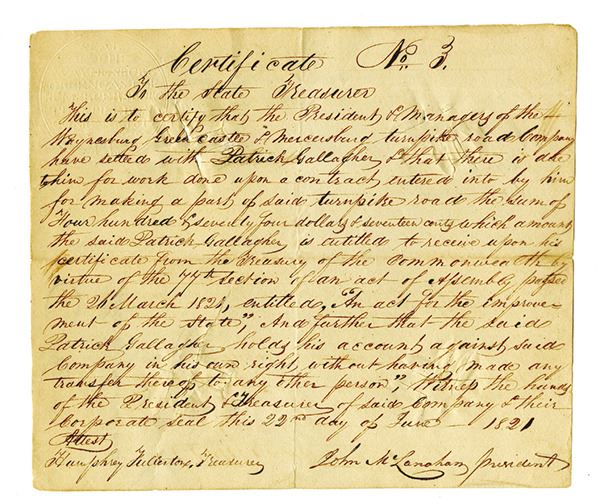 Certificate No. 3.
To the State Treasurer
This is to certify that the President & Managers of the
Waynesburg Greencastle & Mercersburg turnpike road Company
have setled with Patrick Gallagher & that there is due
to him for work done upon a contract entered into by him
for making a part of said turnpike road the sum of
Four hundred & seventy four dollars & seventeen cents which amount
the said Patrick Gallagher is entitled to receive upon his
Certificate from the Treasury of the Commonwealth by
virtue of the 77th section of an act of Assembly passed
the 26 March 1821, entitled, "An act for the Improve-
ment of the State"; And farther that the said
Patrick Gallagher holds his account against said
Company in his own right without having made any
transfer thereof to any other person"; Witness the hands
of the President & Treasurer of said Company & their
Corporate seal this 22nd day of June 1821
Attest
Humphrey Fullerton, Treasurer
John McLanahan president